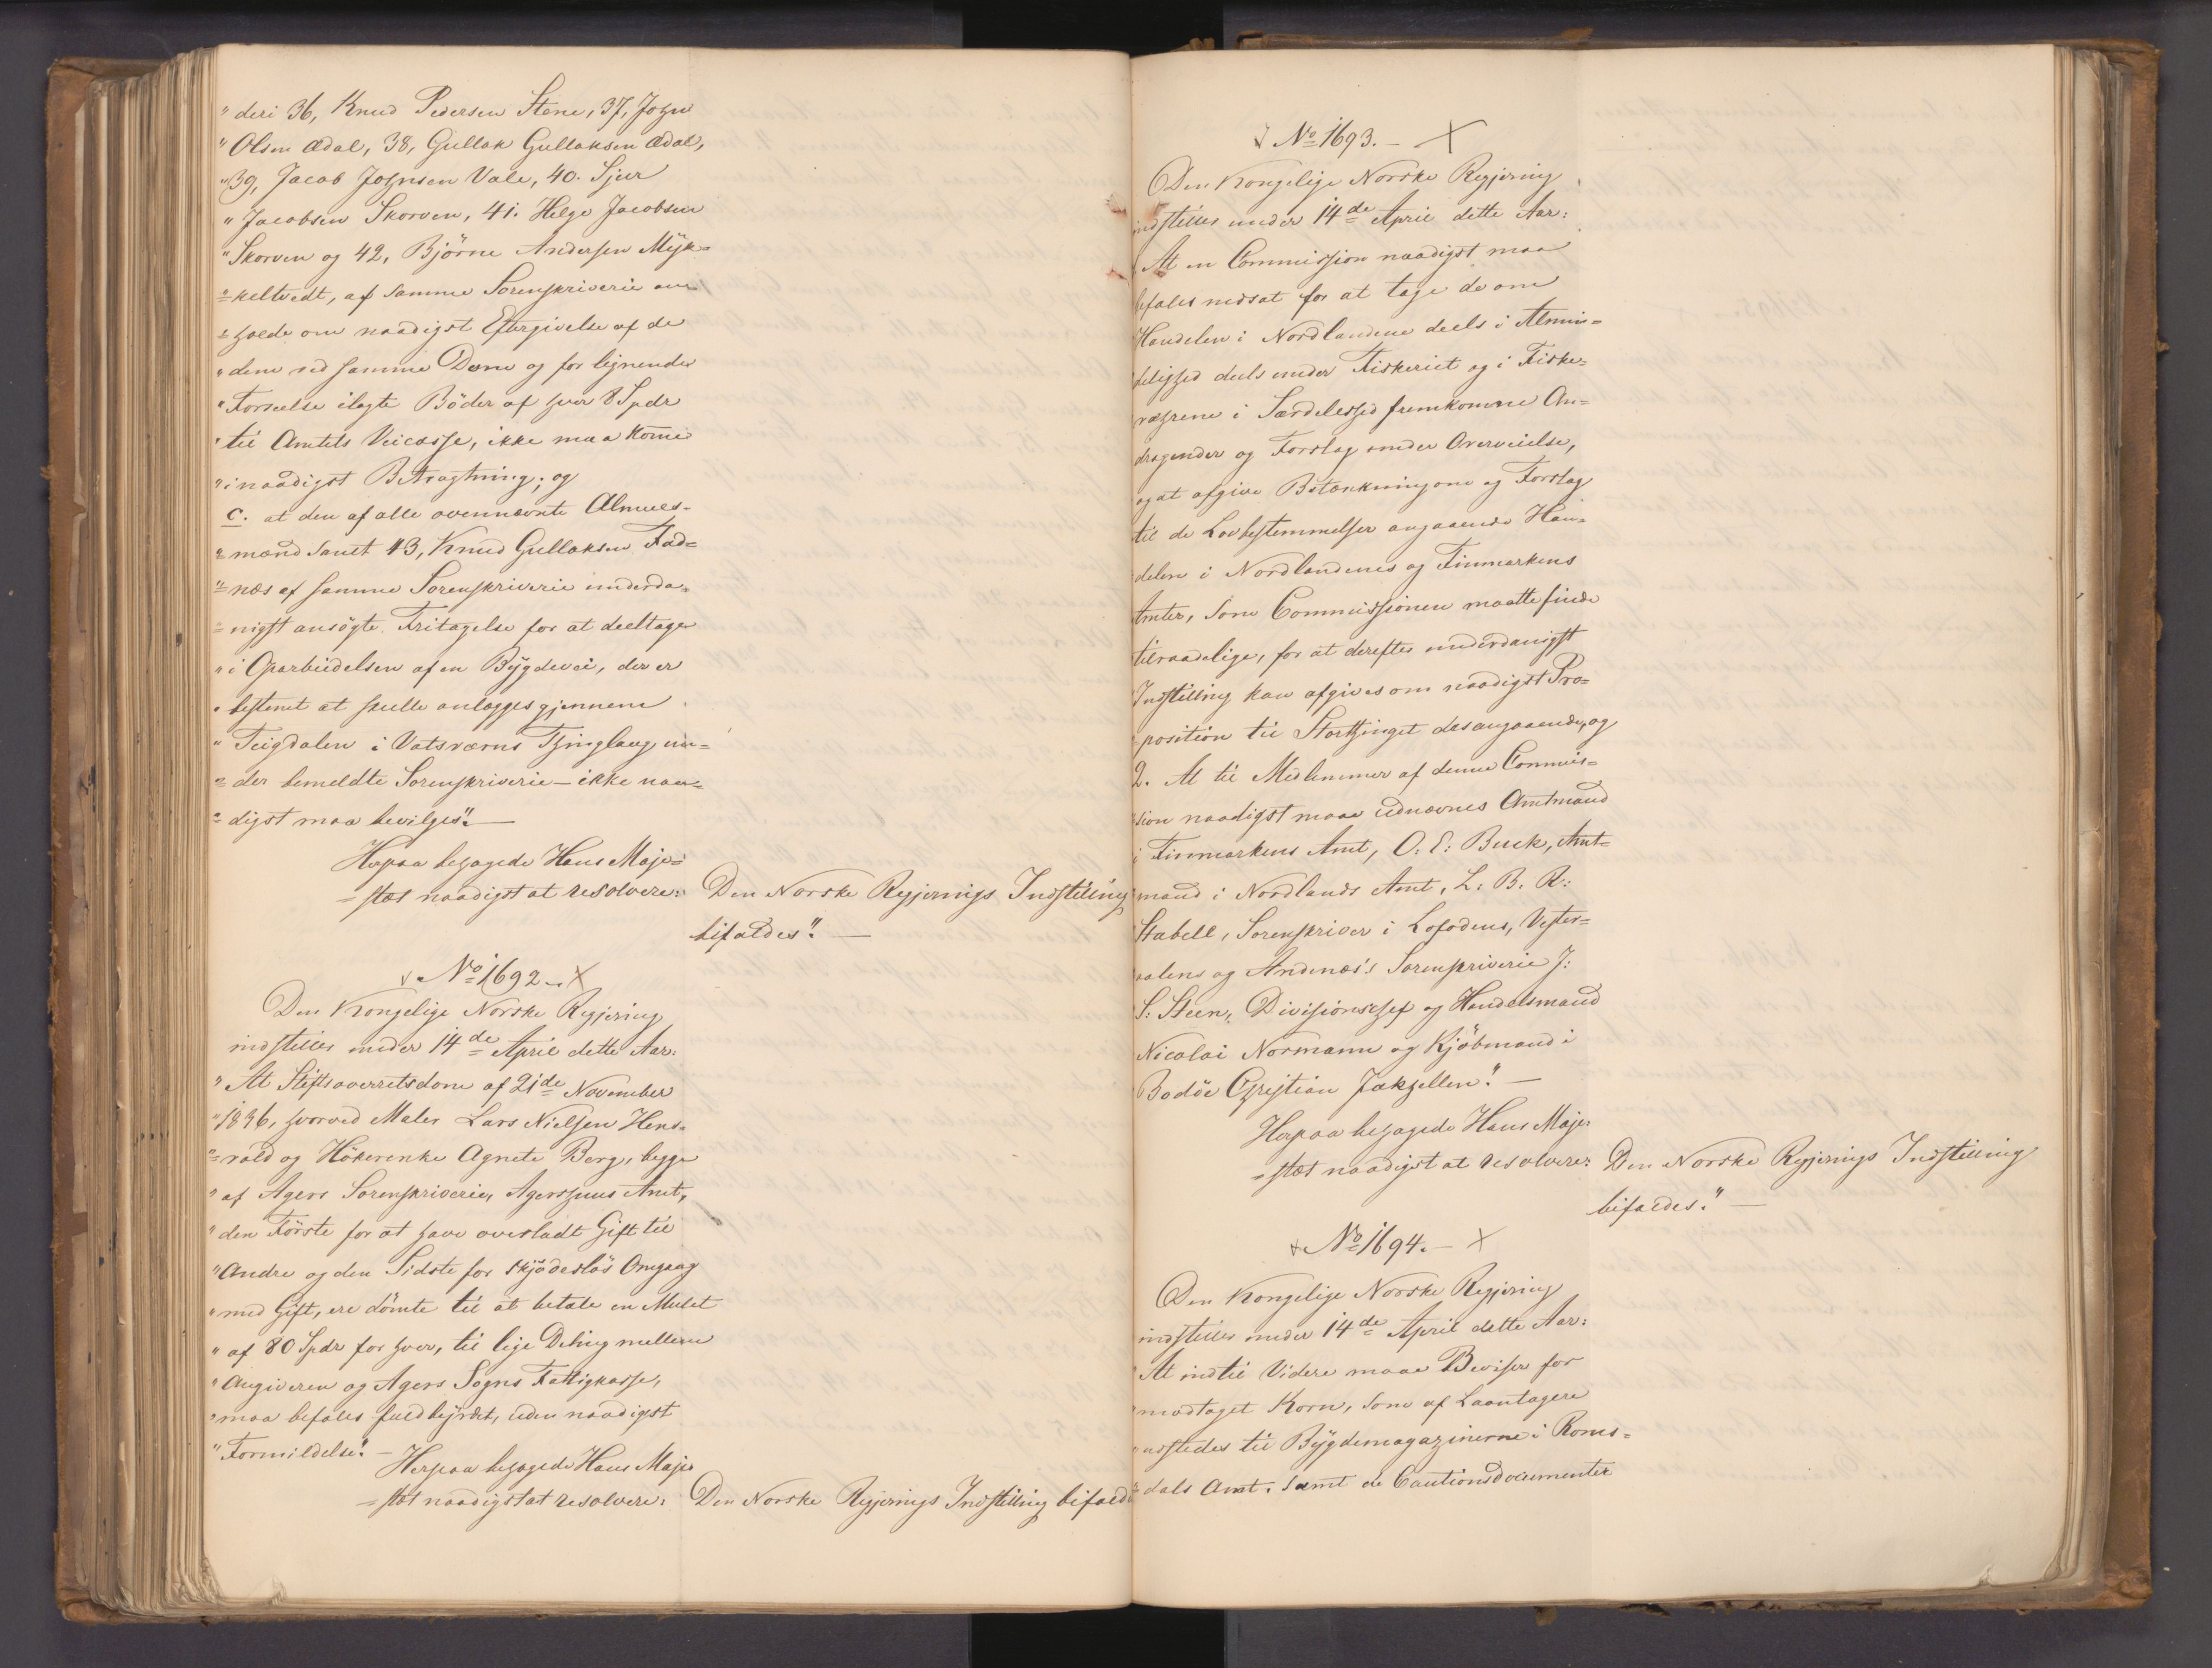 " deri 36, Knud Pedersen Stene, 37, John
" Olsen Ædal, 38, Gullak Gullaksen Ædal,
" 39, Jacob Johnsen Vale, 40. Sjur
" Jacobsen Skorven, 41. Helge Jacobsen
" Skorven og 42, Björne Andersen Myk=
"=keltvedt, af samme Sorenskriverie an=
"=holde om naadigst Eftergivelse af de
" dem ved samme Dom og for lignende
" Forseelse ilagte Böder af hver 8 Spdr
" til Amtets Veicasse, ikke maa komme
" i naadigst Betragtning; og
C. at den af alle ovennævnte Almues-
"=mænd samt 43, Knud Gullaksen Fad=
"=næs af samme Sorenskriverie underda=
"=nigst ansögte Fritagelse for at deeltage
" i Oparbeidelsen af en Bygdevei, der er
" bestemt at skulle anlægges gjennem
" Teigdalen i Vatsværns Thinglaug un=
"=der bemeldte Sorenskriverie – ikke naa=
"=digst maa bevilges". —
Herpaa behagede Hans Maje=
=stæt naadigst at resolvere: Den Norske Regjerings Indstilling
bifaldes". —
No 1692. – X
Den Kongelige Norske Regjering
indstiller under 14de April dette Aar:
" At Stiftsoverretsdom af 21de November
" 1836, hvorved Maler Lars Nielsen Hens=
"=vold og Hökerenke Agnete Berg, begge
" af Agers Sorenskriverie, Agershuus Amt,
" den Förste for at have overladt Gift til
" Andre og den Sidste for skjödeslös Omgang
" med Gift, ere dömte til at betale en Mulct
" af 80 Spdr for hver, til lige Deling mellem
" Angiveren og Agers Sogns Fattigkasse,
" maa befales fuldbyrdet, uden naadigst
" Formildelse". –
Herpaa behagede Hans Maje=
=stæt naadigst at resolvere: Den Norske Regjerings Indstilling bifald
No 1693. – X
Den Kongelige Norske Regjering
indstiller under 14de April dette Aar:
At en Commission naadigst maa
befales nedsat for at tage de om
Handelen i Nordlandene deels i Almin=
delighed deels under Fiskeriet og i Fiske=
værene i Særdeleshed fremkomne An=
dragender og Forslag under Overveielse,
og at afgive Betænkning om og Forslag
til de Lovbestemmelser angaaende Han=
delen i Nordlandenes og Finmarkens
Amter, som Commissionen maatte finde
tilraadelige, for at derefter underdanigst
Indstilling kan afgives om naadigst Pro=
position til Storthinget desangaaende, og
2. At til Medlemmer af denne Commis=
sion naadigst maa udnævnes Amtmand
i Finmarkens Amt, O: E: Buck, Amt=
mand i Nordlands Amt, L: B: R:
Stabell, Sorenskriver i Lofodens, Vester=
aalens og Andenæs's Sorenskriverie J:
S: Steen, Divisionschef og Handelsmand
Nicolai Normann og Kjöbmand i
Bodöe Christian Jakhellen". —
Herpaa behagede Hans Maje=
=stæt naadigst at resolvere: Den Norske Regjerings Indstilling
bifaldes." —
No 1694. – X
Den Kongelige Norske Regjering
indstiller under 14de April dette Aar:
" At indtil Videre maae Beviser for
" modtaget Korn, som af Laantagere
" udstedes til Bygdemagazinerne i Roms=
"=dals Amt, samt de Cautionsdocumenter